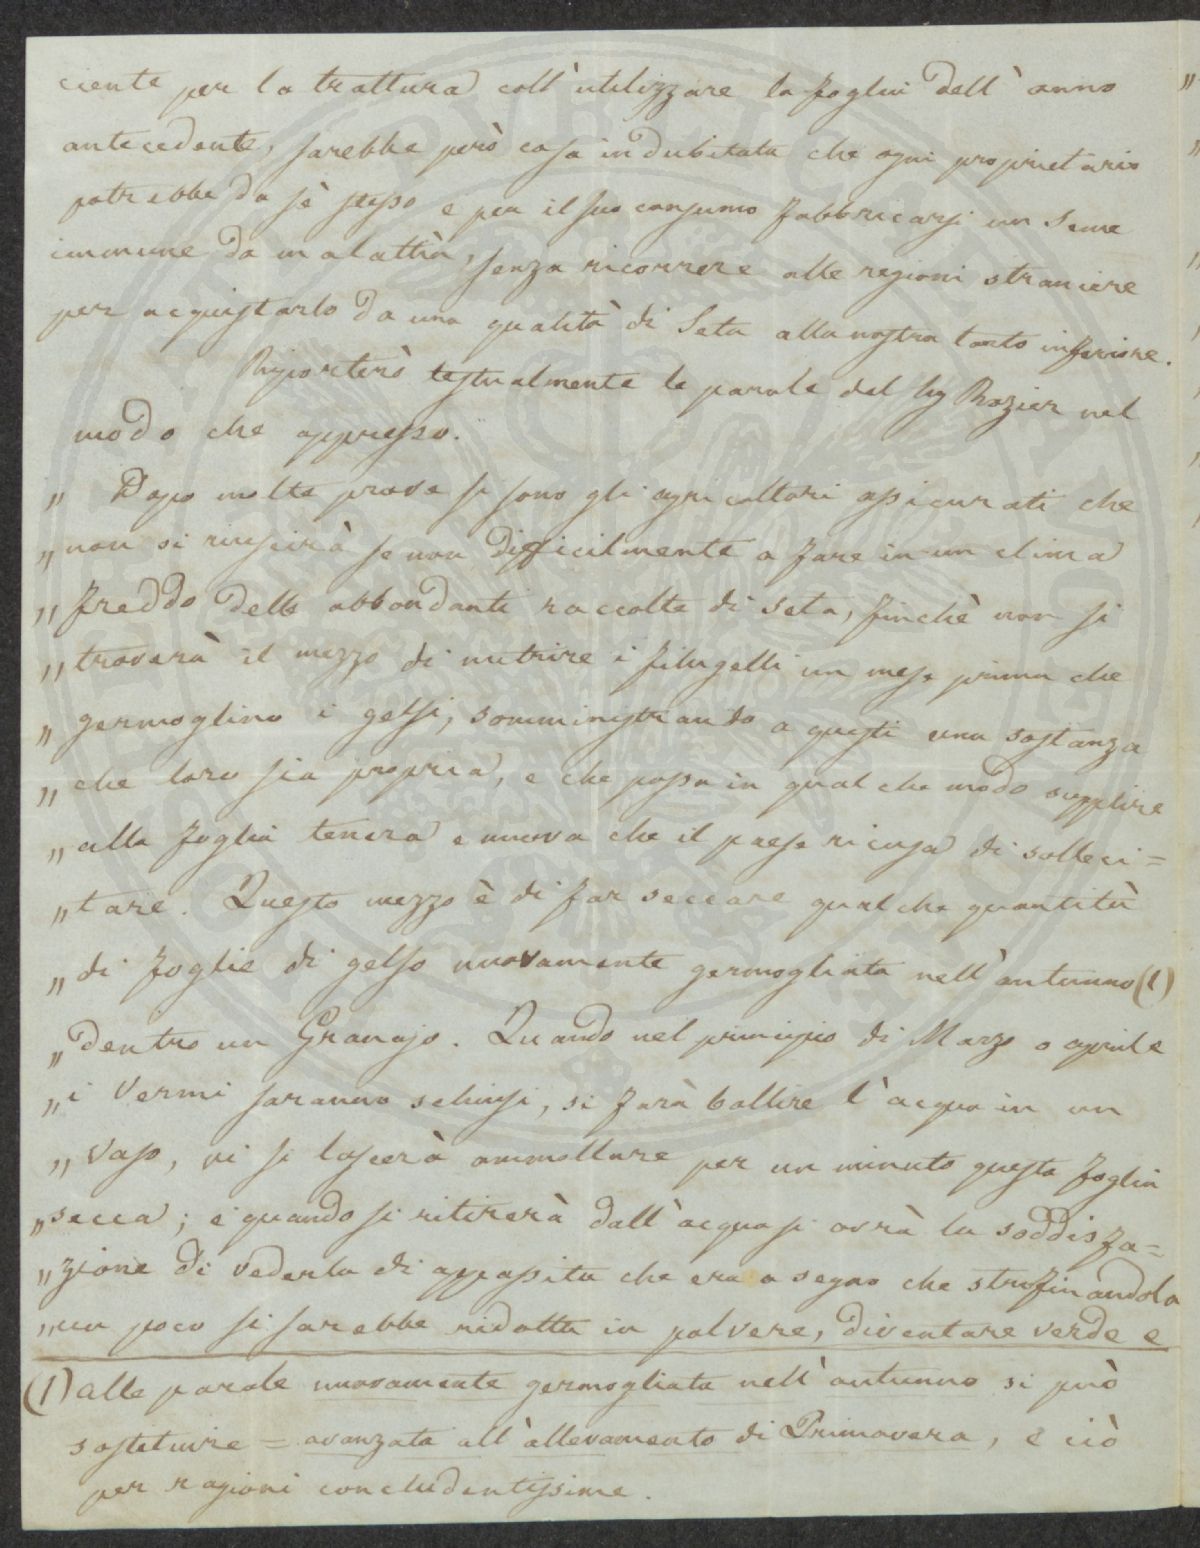 ciente per la trattura coll'utilizzare la foglia dell'anno
antecedente, sarebbe però cosa indubitata che ogni proprietario
potrebbe da sè stesso e per il suo consumo fabbricarsi un seme
immune da malattia, senza ricorrere alle regioni straniere
per acquistarlo da una qualità di Seta alla nostra tanto inferiore.
Riporterò testualmente le parole del Sig Rozier nel
modo che appresso.
„ Dopo molte prove si sono gli agricoltori assicurati che
„ non si riuscirà se non difficilmente a fare in un clima
„ freddo delle abbondanti raccolte di seta, finchè non si
„ troverà il mezzo di nutrire i filugelli un mese prima che
„ germoglino i gelsi, somministrando a questi una sostanza
„ che loro sia propria, e che possa in qualche modo supplire
„ alla foglia tenera e nuova che il paese ricusa di solleci=
„ tare. Questo mezzo è di far seccare qualche quantità
„ di foglie di gelso nuovamente germogliata nell'autunno (1)
„ dentro un Granajo. Quando nel principio di Marzo o aprile
„ i vermi saranno schiusi, si farà bollire l'acqua in un
„ vaso, vi si lascerà ammollare per un minuto questa foglia
„ secca; e quando si ritirerà dall'acqua si avrà la soddisfa=
„ zione di vederla di appassita che era a segno che strofinandola
„ un poco si sarebbe ridotta in polvere, diventare verde e
(1) alle parole nuovamente germogliata nell'autunno si può
sostituire = avanzata all'allevamento di Primavera, e ciò
per ragioni concludentissime.